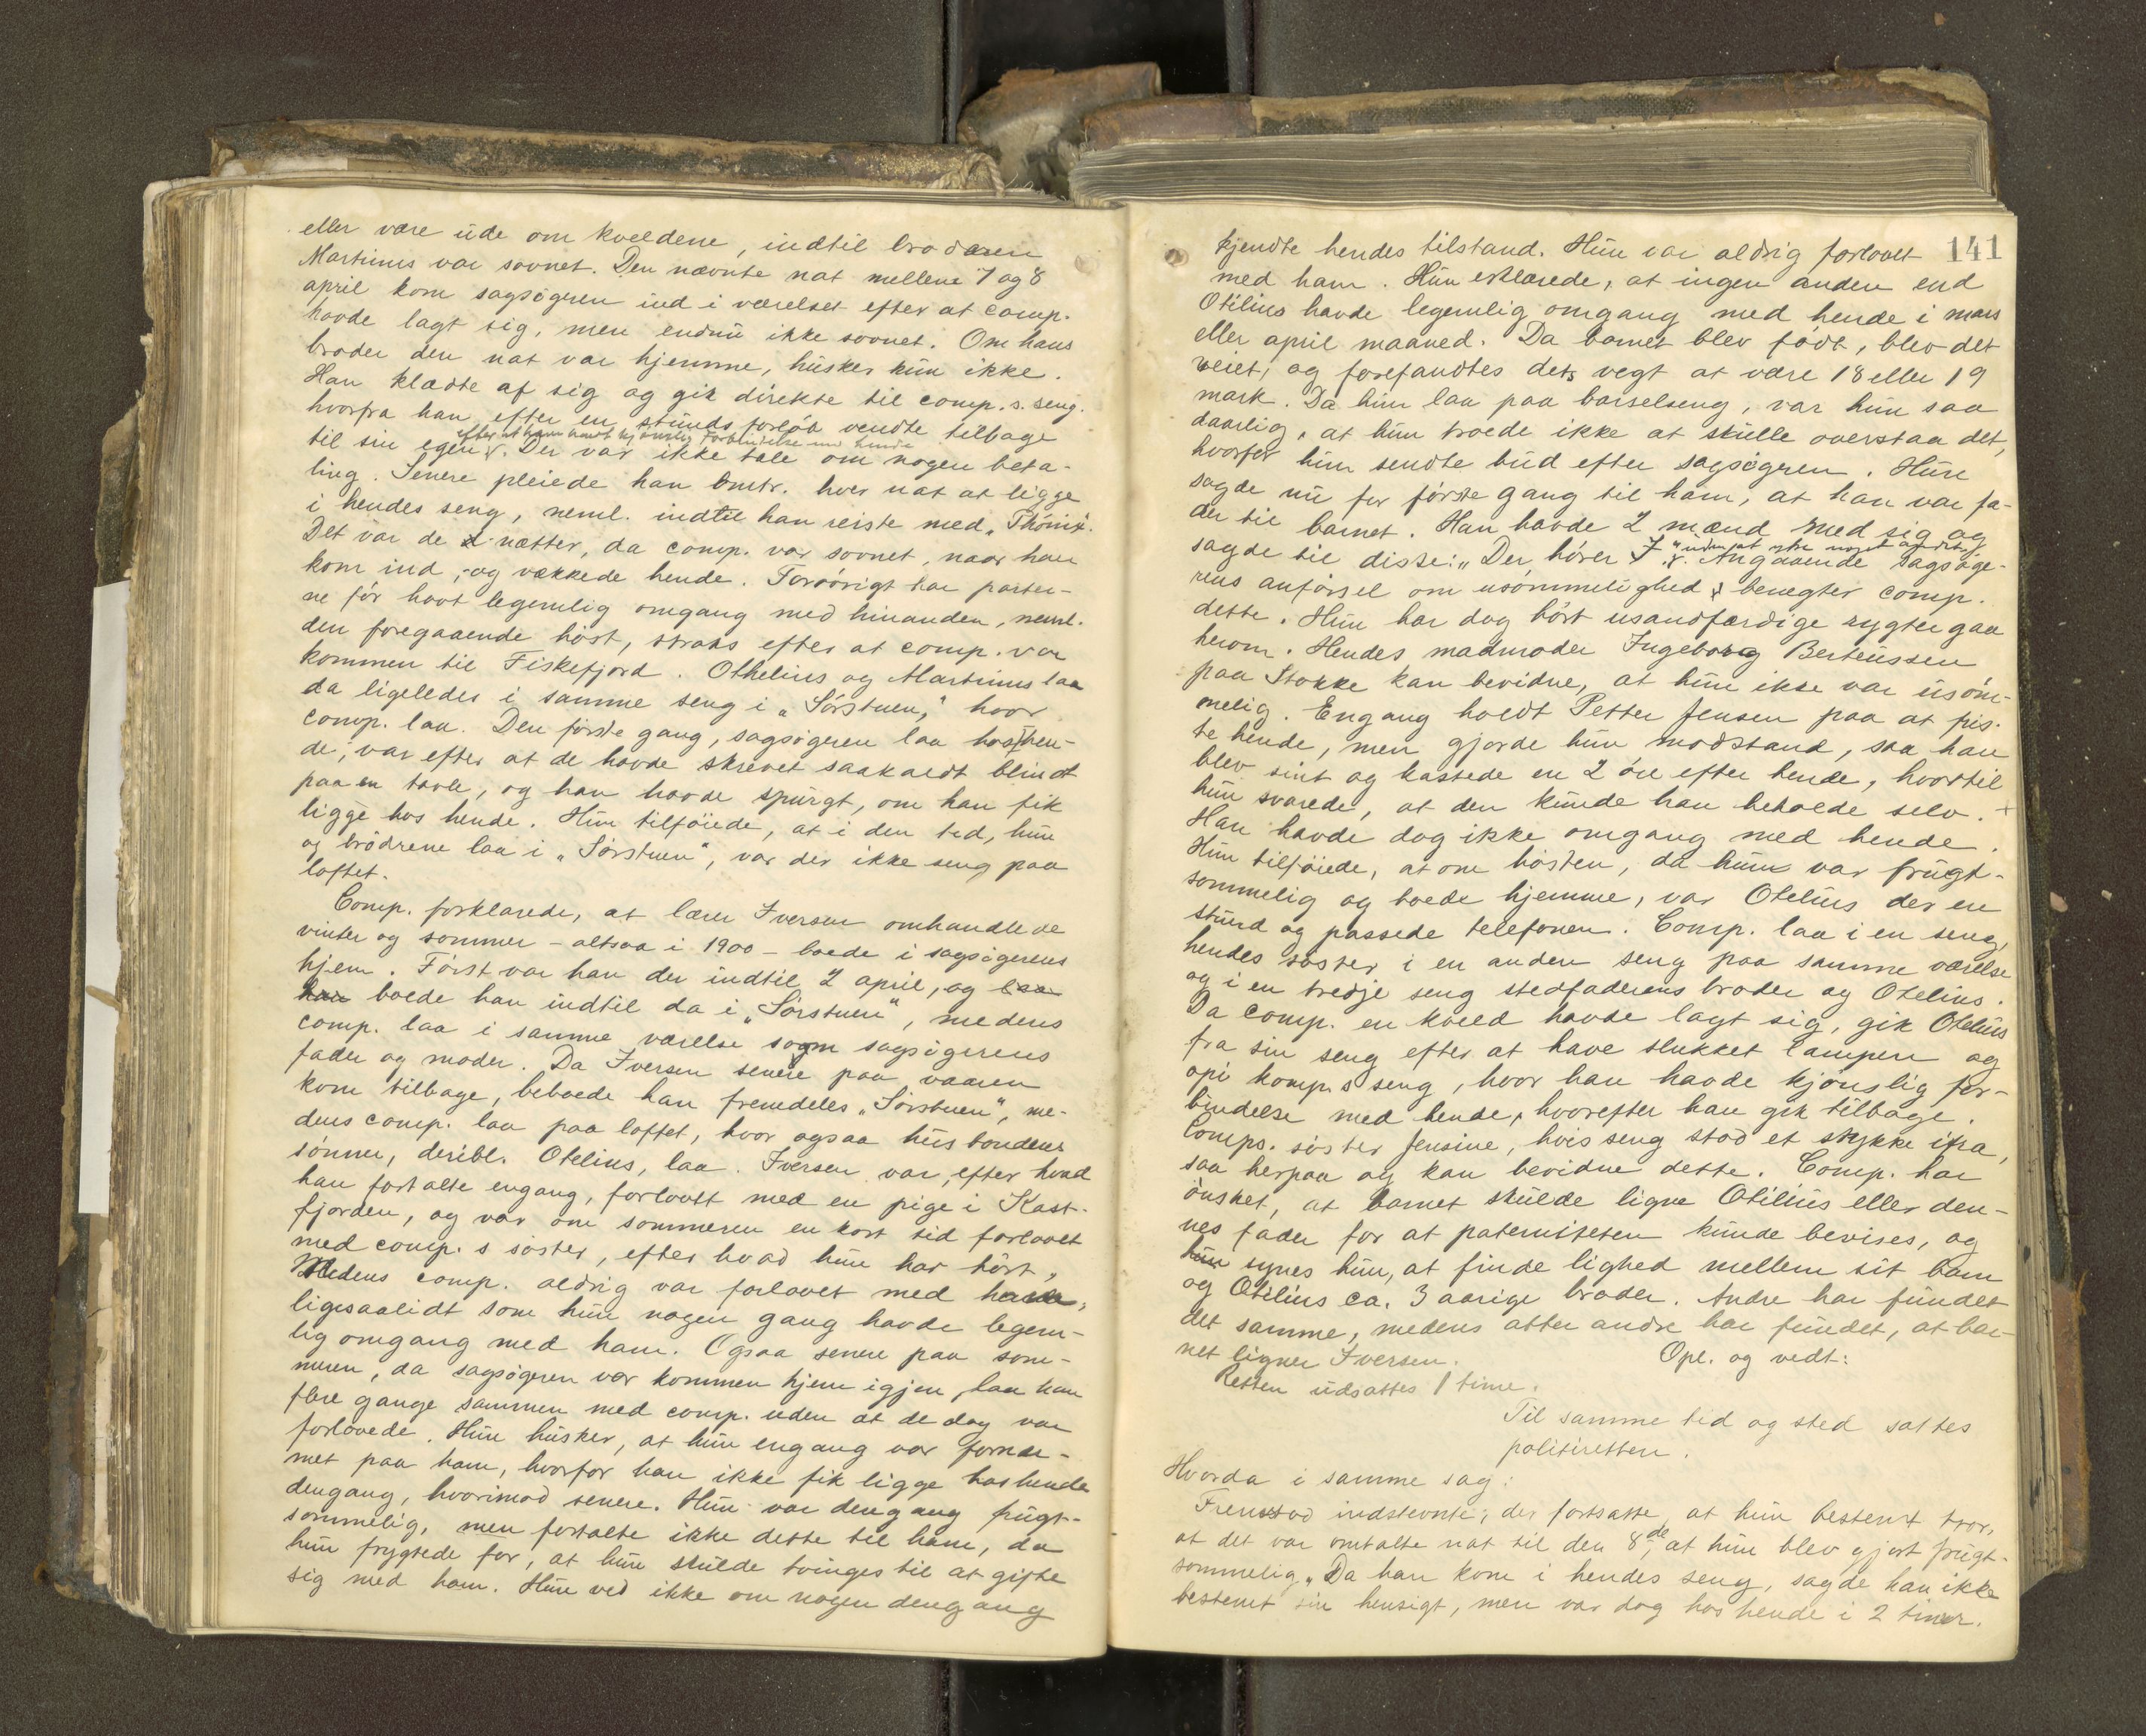 eller være ude om kveldene, indtil broderen
Martinus var sovnet. Den nævnte nat mellem 7 og 8
april kom sagsøgeren ind i værelset efter at comp.
havde lagt sig, men endnu ikke sovnet. Om hans
broder den nat var hjemme, husker hun ikke.
Han klædte af sig og gik direkte til comp.s. seng.
hvorfra han efter en stunds forløb vendte tilbage
efter at have havt kjønslig forbindelse med hende
til sin egen. Der var ikke tale om nogen beta-
ling. Senere pleiede han omtr. hver nat at ligge
i hendes seng, neml. indtil han reiste med „Thönix".
Det var de nætter, da comp. var sovnet, naar han
kom ind, og vækkede hende. Forøvrigt har parter-
ne før havt legemlig omgang med hinanden, neml.
den foregaaende høst, straks efter at comp. var
kommen til Fiskefjord. Othelius og Martinus laa
da ligeledes i samme seng i „Sørstuen," hvor
comp. laa. Den første gang, sagsøgeren laa hos hen-
de, var efter at de havde skrevet saakaldt blindt
paa en tavle, og han havde spurgt, om han fik
ligge hos hende. Hun tilføiede, at i den tid, hun
og brødrene laa i „Sørstuen", var der ikke seng paa
loftet.
Comp. forklarede, at lærer Iversen omhandlede
vinter og sommer - altsaa i 1900 - boede i sagsøgerens
hjem. Først var han der indtil 2 april, og
boede han indtil da i „Sørstuen", medens
comp. laa i samme værelse som sagsøgerens
fader og moder. Da Iversen senere paa vaaren
kom tilbage, beboede han fremdeles „Sørstuen", me-
dens comp. laa paa loftet, hvor ogsaa husbondens
sønner, deribl. Otelius, laa. Iversen var, efter hvad
han fortalte engang, forlovet med en pige i Kast-
fjorden, og var om sommeren en kort tid forlovet
med comp.s søster, efter hvad hun har hørt,
Medens comp. aldrig var forlovet med ham,
ligesaalidt som hun nogen gang havde legem-
lig omgang med ham. Ogsaa senere paa som-
meren, da sagsøgeren var kommen hjem igjen, laa han
flere gange sammen med comp. uden at de dog var
forlovede. Hun husker, at hun engang var fornær-
met paa ham, hvorfor han ikke fik ligge hos hende
dengang, hvorimod senere. Hun var dengang frugt-
sommelig, men fortalte ikke dette til ham, da
hun frygtede for, at hun skulde tvinges til at gifte
sig med ham. Hun ved ikke om nogen dengang
141
kjendte hendes tilstand. Hun var aldrig forlovet
med ham. Hun erklærede, at ingen anden end
Otilius havde legemlig omgang med hende i mars
eller april maaned. Da barnet blev født, blev det
veiet, og forefandtes dets vegt at være 18 eller 19
mark. Da hun laa paa barselseng, var hun saa
daarlig, at hun troede ikke at skulle overstaa det,
hvorfor hun sendte bud efter sagsøgeren. Hun
sagde nu for første gang til ham, at han var fa-
der til barnet. Han havde 2 mænd med sig og
sagde til disse: „Der hører I" Angaaende sagsøge-
rens anførsel om usømmelighed benegter comp.
dette. Hun har dog hørt usandfærdige rygter gaa
herom. Hendes madmoder Ingeborg Berteussen
paa Stokke kan bevidne, at hun ikke var usøm-
melig. Engang holdt Petter Jensen paa at fris-
te hende, men gjorde hun modstand, saa han
blev sint og kastede en 2 øre efter hende, hvortil
hun svarede, at den kunde han beholde selv.
Han havde dog ikke omgang med hende.
Hun tilføiede, at om høsten, da hun var frugt-
sommelig og boede hjemme, var Otelius der en
stund og passede telefonen. Comp. laa i en seng,
hendes søster i en anden seng paa samme værelse
og i en tredje seng stedfaderens broder og Otelius.
Da comp. en kveld havde lagt sig, gik Otelius
fra sin seng efter at have slukket lampen og
opi komp.s seng, hvor han havde kjønslig for-
bindelse med hende, hvorefter han gik tilbage.
Comps. søster Jensine, hvis seng stod et stykke ifra,
saa herpaa og kan bevidne dette. Comp. har
ønsket, at barnet skulde ligne Otilius eller den-
nes fader for at paterniteten kunde bevises, og
synes hun, at finde lighed mellem sit barn
og Otilius ca. 3 aarige broder. Andre har fundet
det samme, medens atter andre har fundet, at bar-
net ligner Iversen. Opl. og vedt:
Retten udsattes 1 time.
Til samme tid og sted sattes
politiretten.
Hvorda i samme sag:
Fremstod indstevnte, der fortsatte, at hun bestemt tror,
at det var omtalte nat til den 8de, at hun blev gjort frugt-
sommelig. Da han kom i hendes seng, sagde han ikke
bestemt sin hensigt, men var dog hos hende i 2 timer.